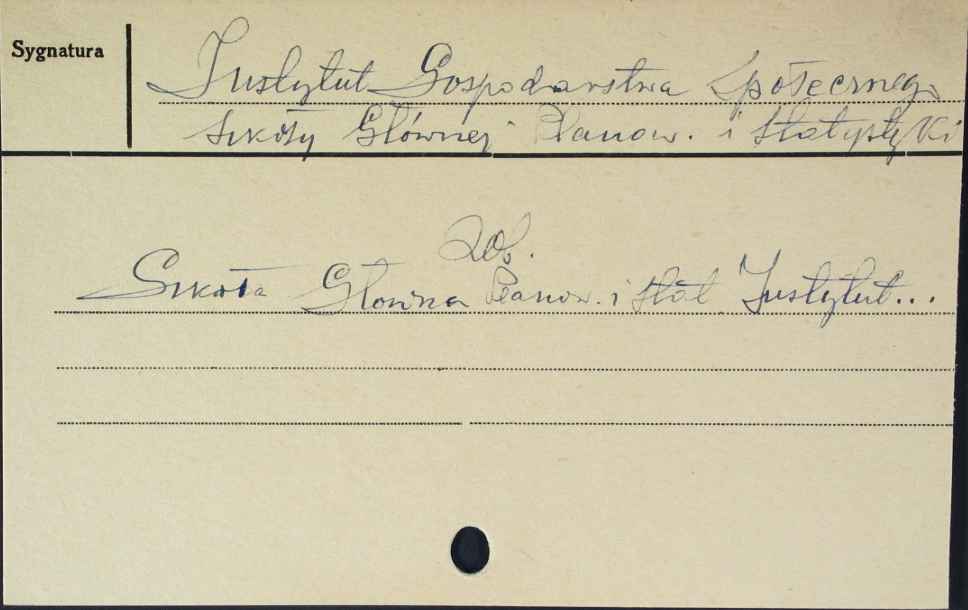 Sygnatura
Instytut Gospodarstwa Społecznego
Szkoły Głównej Planow. i Statystyki
Zob.
Szkoła Główna Planow. i Stat Instytut...